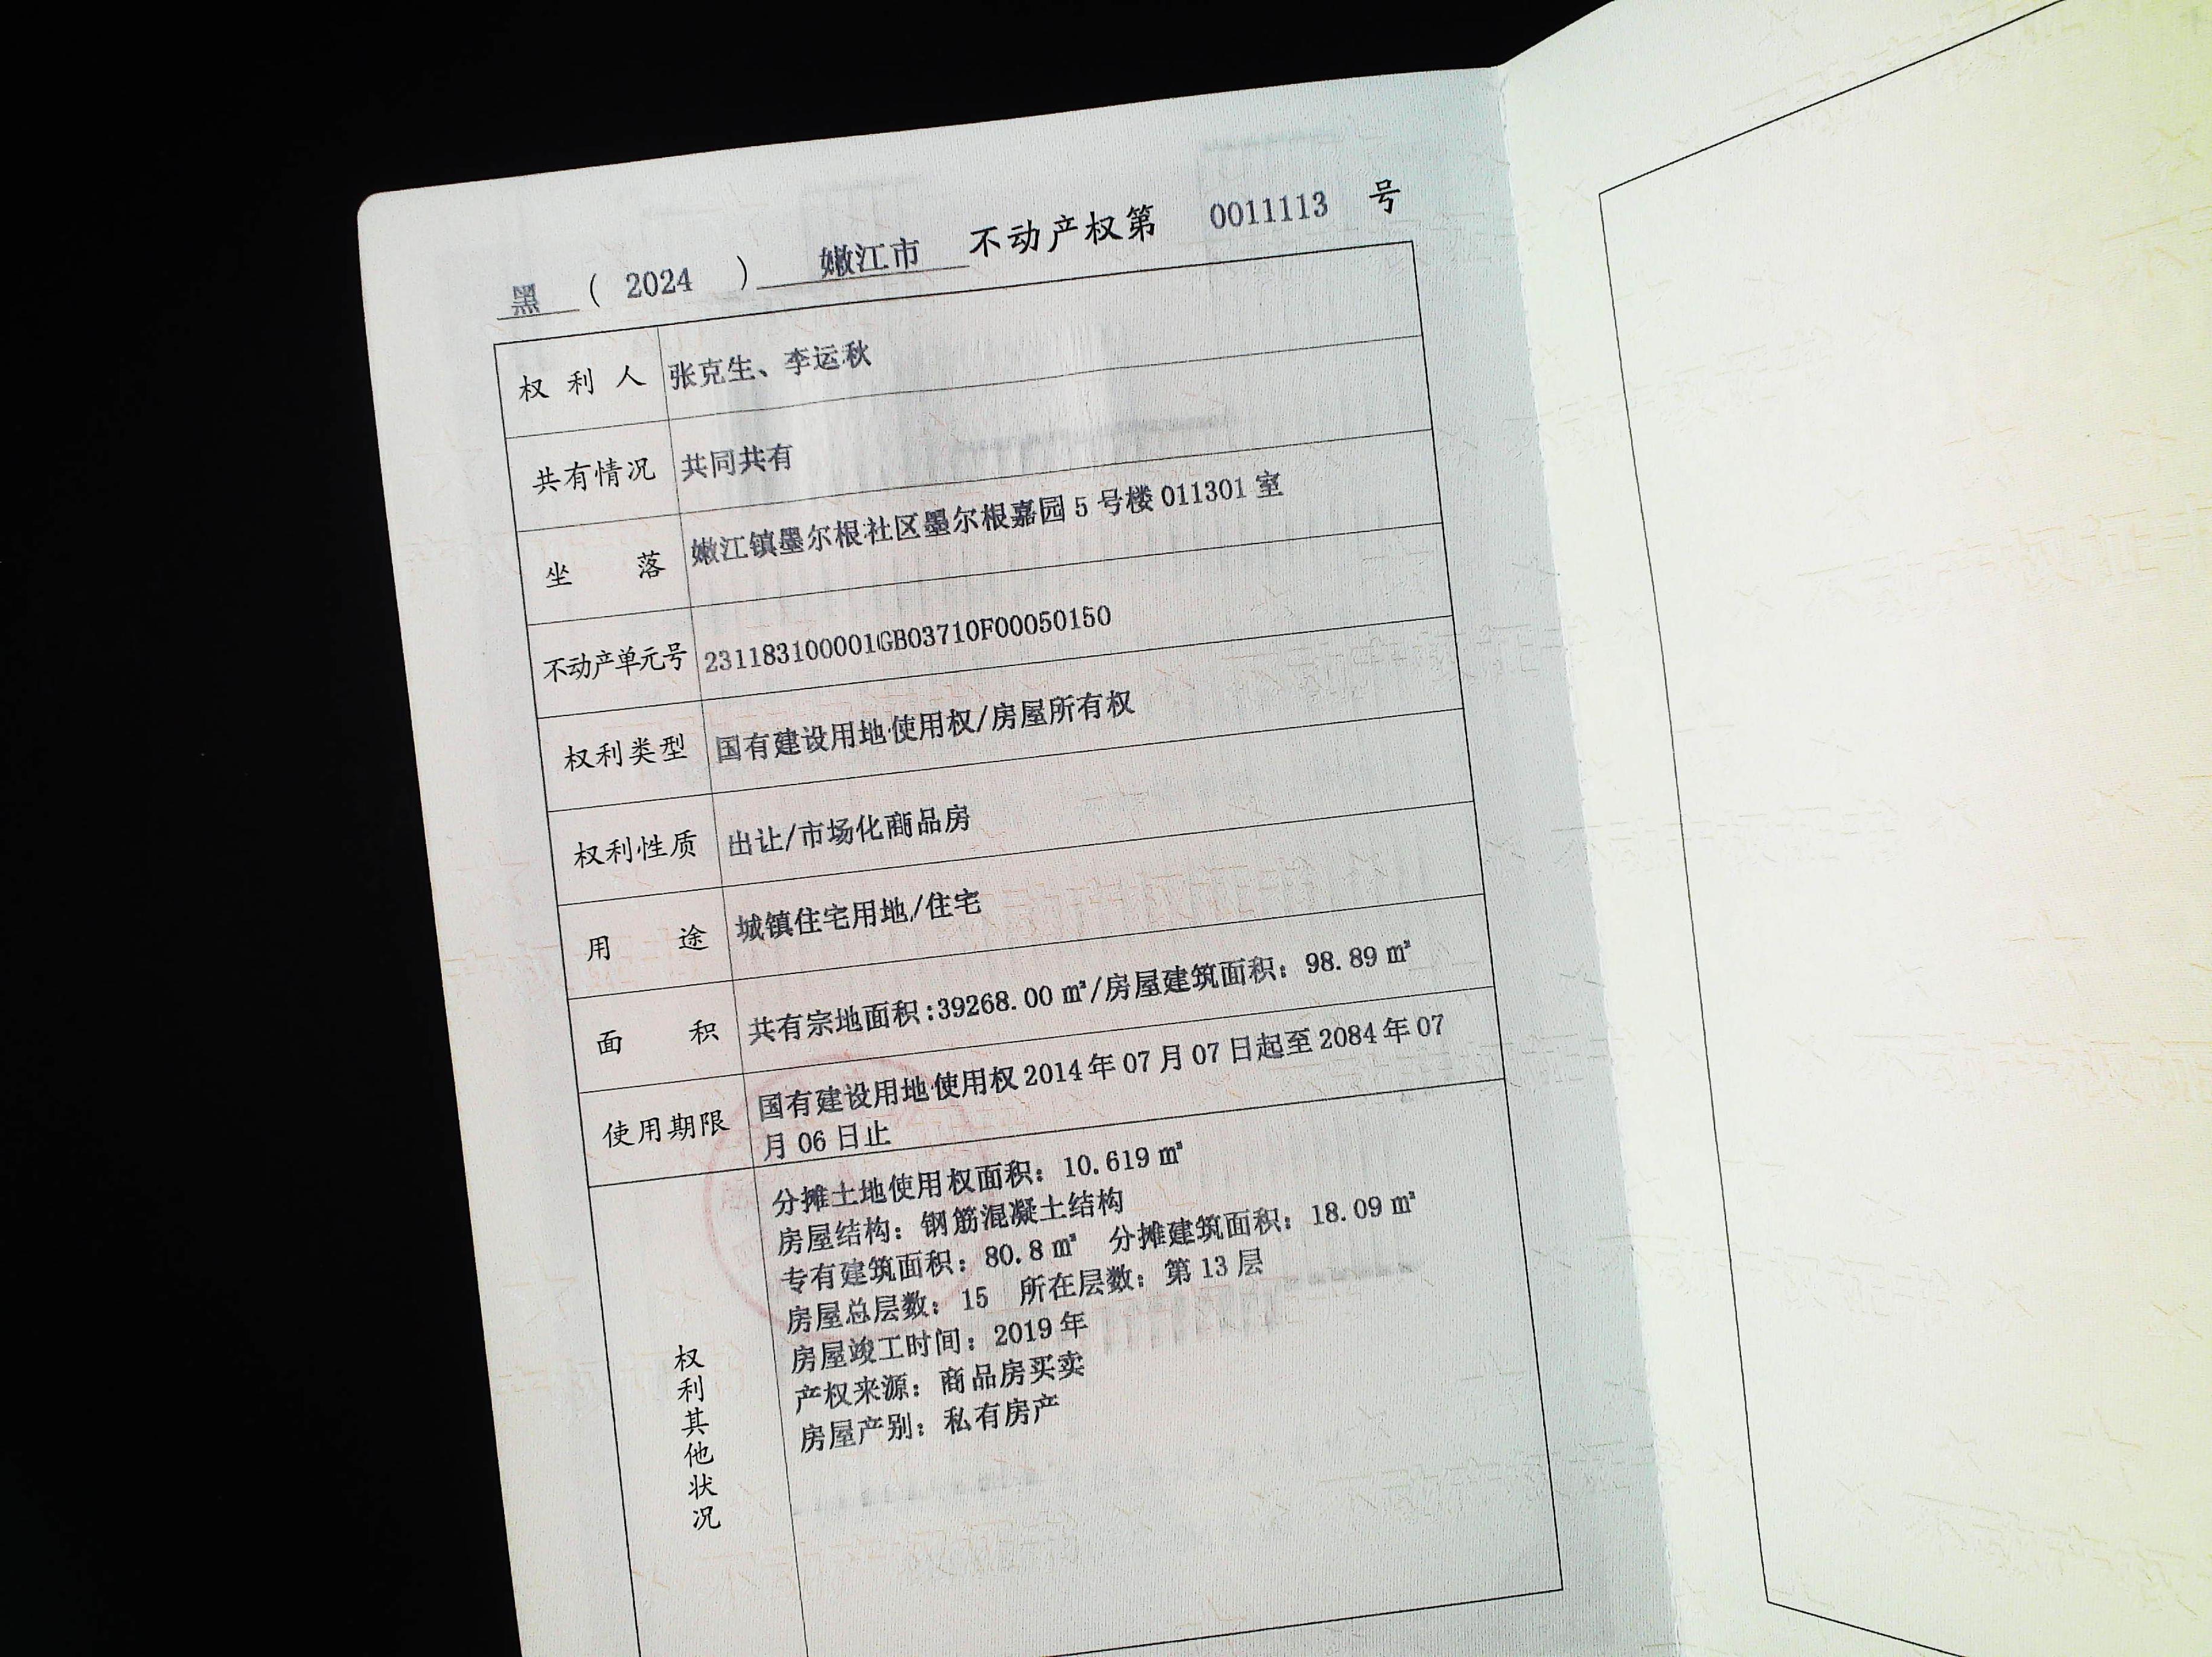 黑 ( 2024 ) 嫩江市 不动产权第 0011113 号
权利人 张克生、李运秋
共有情况 共同共有
坐落 嫩江镇墨尔根社区墨尔根嘉园 5 号楼 011301 室
不动产单元号 231183100001GB03710F00050150
权利类型 国有建设用地使用权/房屋所有权
权利性质 出让/市场化商品房
用途 城镇住宅用地/住宅
面积 共有宗地面积:39268.00 ㎡/房屋建筑面积: 98.89 ㎡
使用期限 国有建设用地使用权 2014 年 07 月 07 日起至 2084 年 07
月 06 日止
权利其他状况
分摊土地使用权面积: 10.619 ㎡
房屋结构: 钢筋混凝土结构
专有建筑面积: 80.8 ㎡ 分摊建筑面积: 18.09 ㎡
房屋总层数: 15 所在层数: 第 13 层
房屋竣工时间: 2019 年
产权来源: 商品房买卖
房屋产别: 私有房产